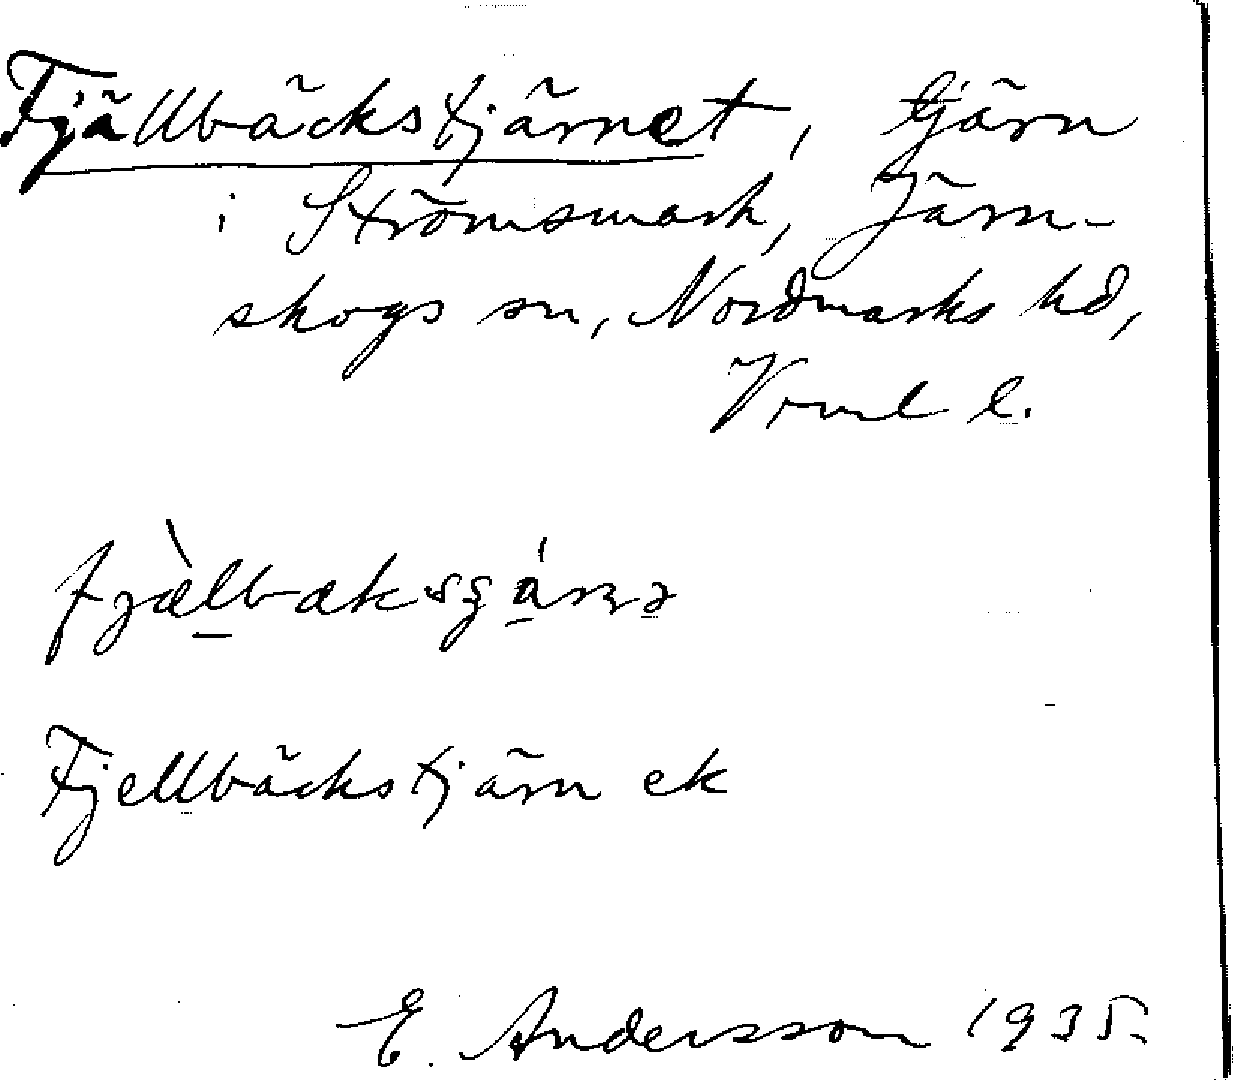 Fjällbäckstjärnet, tjärn
i Strömsmark, Järn-
skogs sn, Nordmarks hd,
Vrml l.
Fjellbäckstjärn ek
E. Andersson 1935.